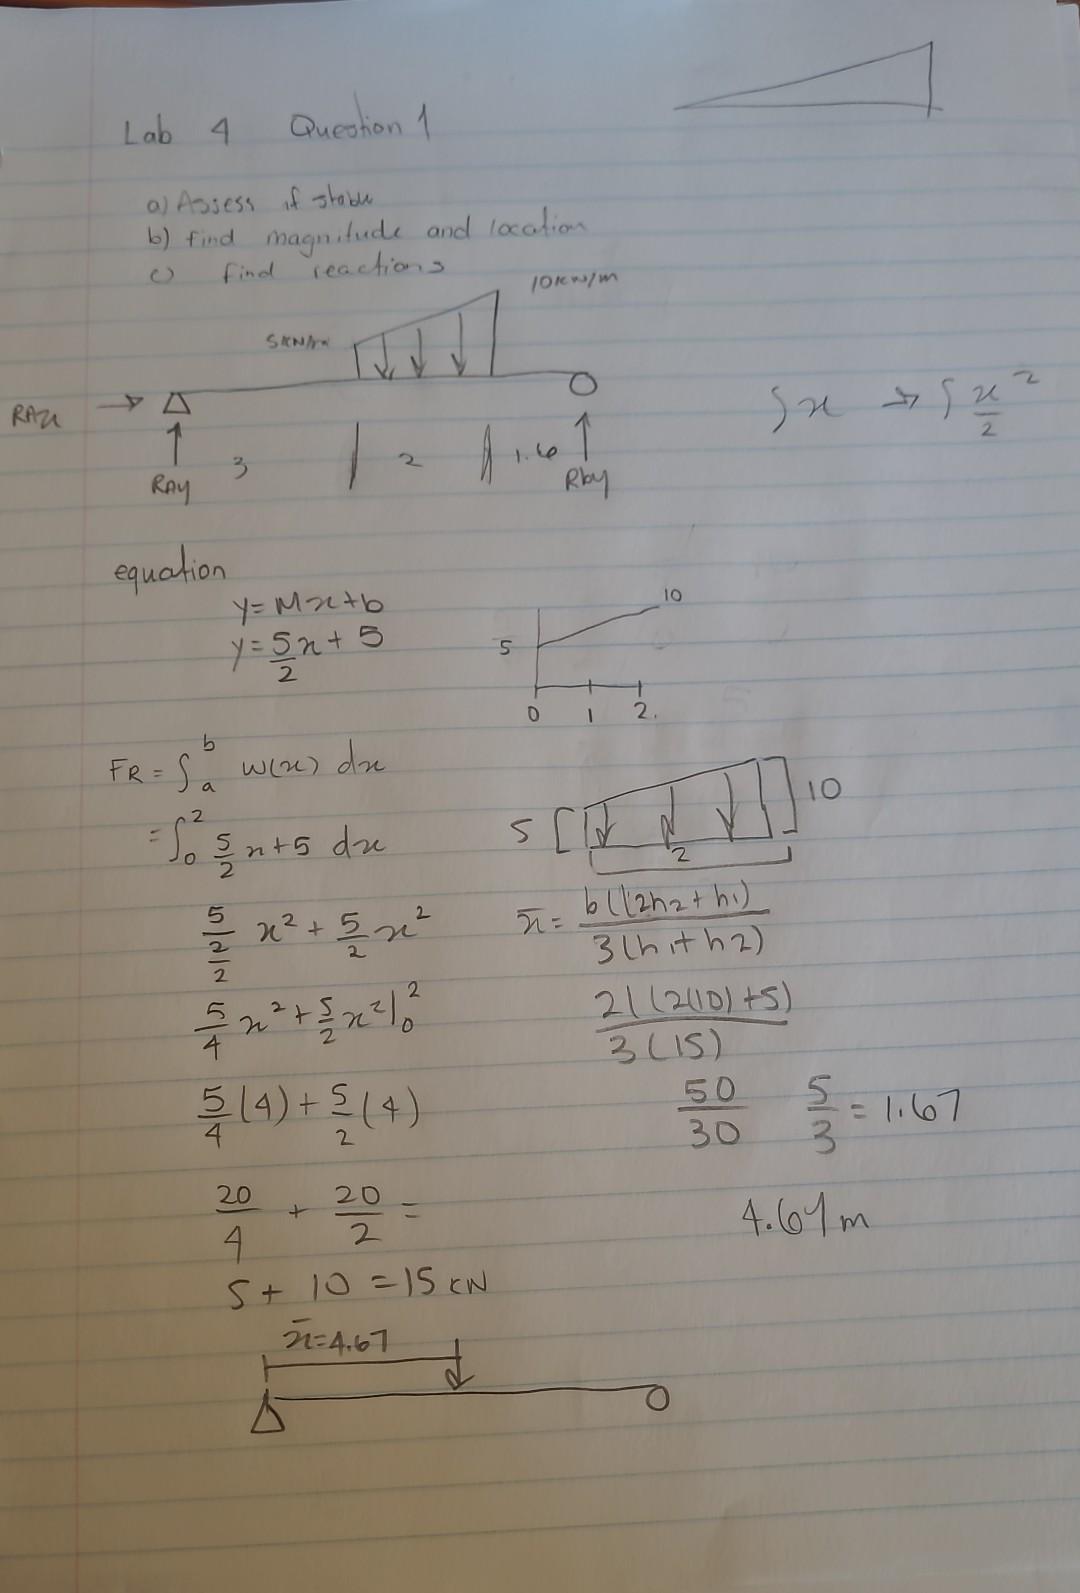 Lab 4 Question 1
a) Assess if stable
b) find magnitude and location
c) find reactions
10KN/m
5KN/m
RAx
RAy 3 2 1.6 Rby
∫x → ∫x²/2
equation
y = Mx + b
y = 5/2 x + 5
5 10
0 1 2.
FR = ∫ₐᵇ w(x) dx
= ∫₀² 5/2 x + 5 dx
5/(2/2) x² + 5/2 x²
5/4 x² + 5/2 x² |₀²
5/4 (4) + 5/2 (4)
20/4 + 20/2 =
5 + 10 = 15 KN
5 [ ] 10
2
x̄ = b((2h2 + h1) / 3(h1 + h2)
2((2(10) + 5) / 3(15)
50/30 5/3 = 1.67
4.67m
x̄ = 4.67